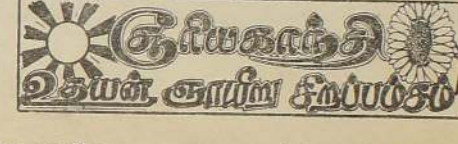 சூரியகாந்தி
உதயன் ஞாயிறு சிறப்பம்சம்